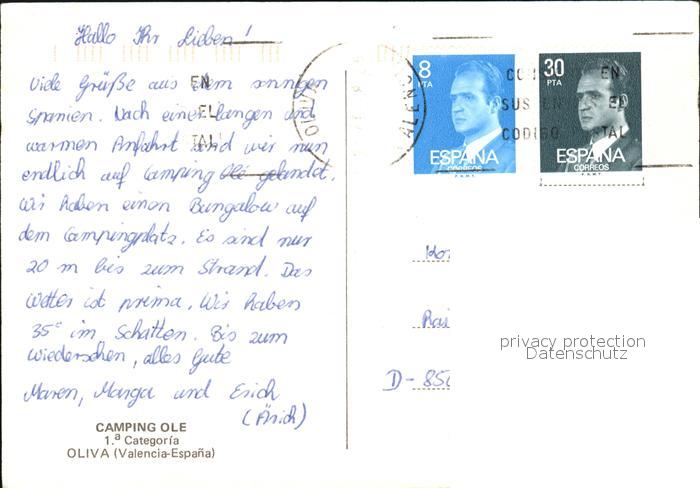 Hallo Ihr Lieben!
Viele Grüße aus dem sonnigen
Spanien. Nach einer langen und
warmen Anfahrt sind wir nun
endlich auf Camping Olé gelandet.
Wir haben einen Bungalow auf
dem Campingplatz. Es sind nur
20 m bis zum Strand. Das
Wetter ist prima. Wir haben
35° im Schatten. Bis zum
Wiedersehen, alles Gute
Maren, Marga und Erich
(Ärich)
CAMPING OLE
1.ª Categoría
OLIVA (Valencia-España)
EN
EL
TAL
8
PTA
ESPAÑA
CORREOS
F.N.M.T.
30
PTA
ESPAÑA
CORREOS
F.N.M.T.
EN
SUS
CODIGO TAL
D-850
privacy protection
Datenschutz